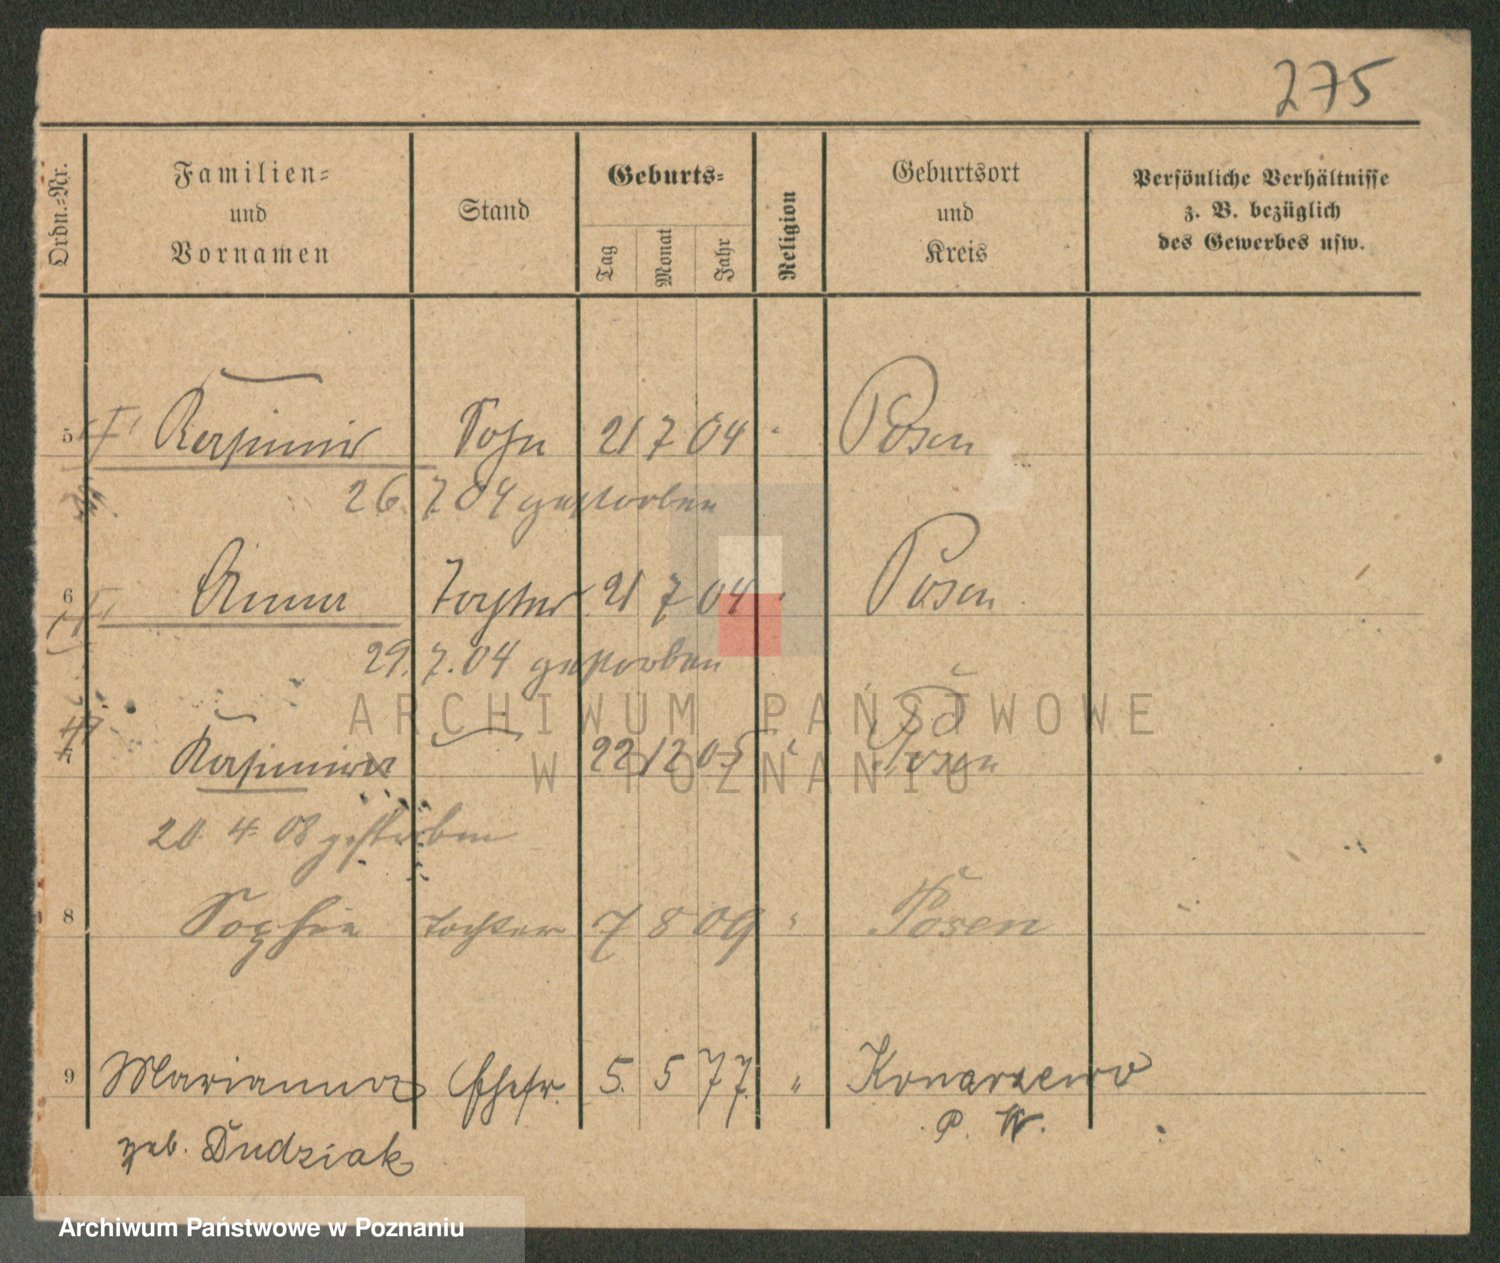 275
Ordn.-Nr.
Familien-
und
Vornamen
Stand
Geburts-
Tag
Monat
Jahr
Religion
Geburtsort
und
Kreis
Persönliche Verhältnisse
z. B. bezüglich
des Gewerbes usw.
5 Kasimir Sohn 21 7 04 " Posen
26.7.04 gestorben
6 Anna Tochter 21 7 04 " Posen
29.7.04 gestorben
ARCHIWUM PAŃSTWOWE
7 Kasimir 22 12 05 " Posen
W POZNANIU
20. 4. 08 gestorben
8 Sophie Tochter 7 8 09 " Posen
9 Marianna Ehefr. 5. 5 77. " Konarzewo
P. W.
geb. Dudziak
Archiwum Państwowe w Poznaniu